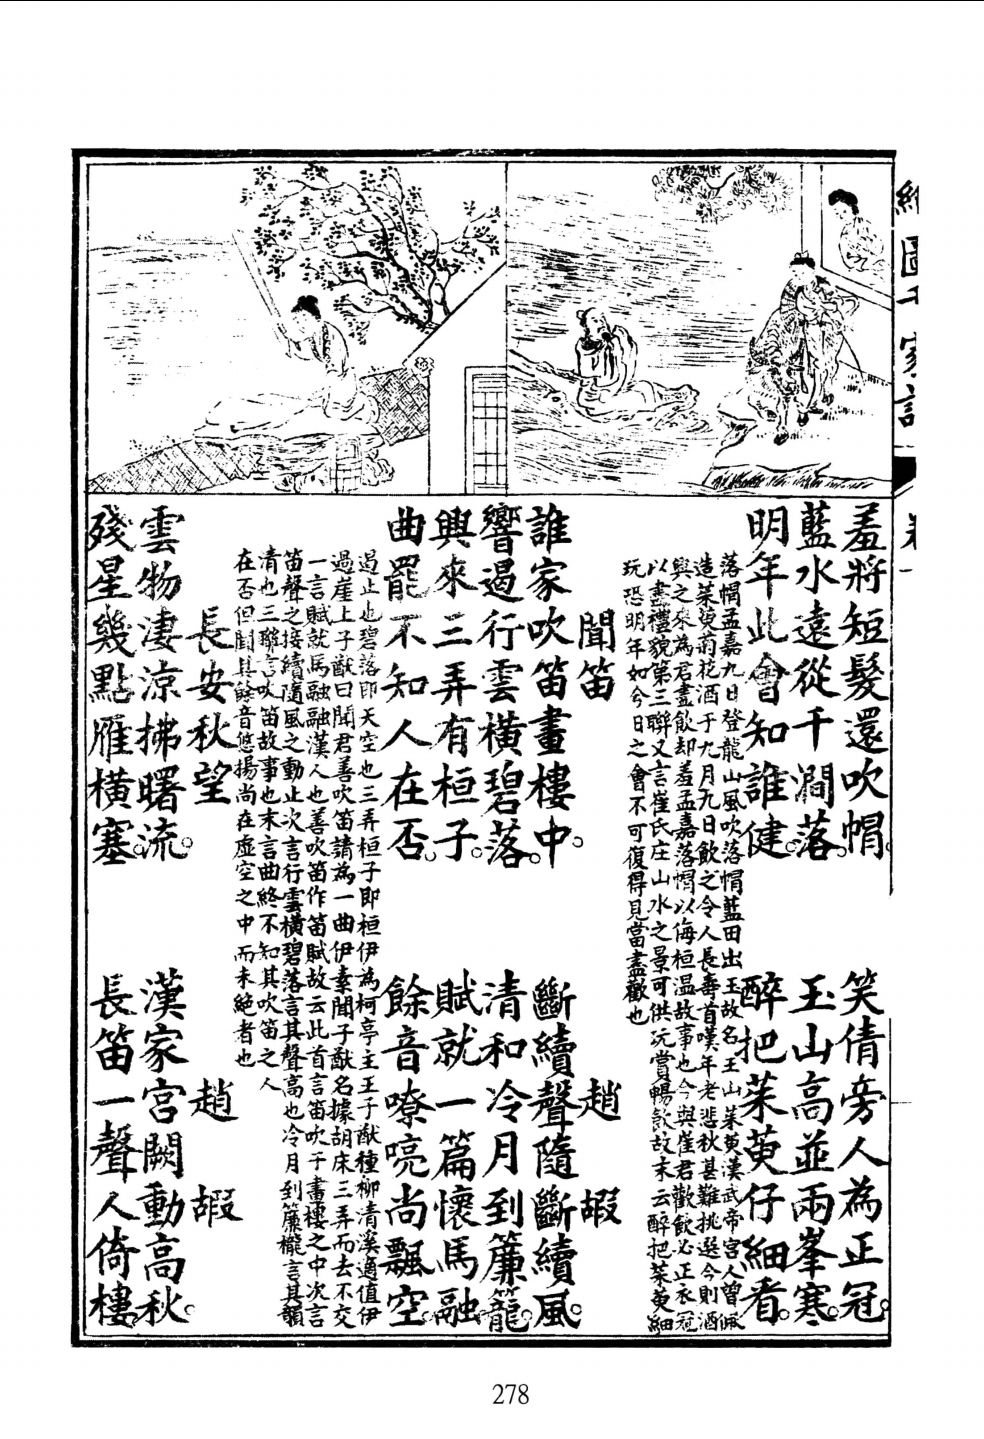 圖千家詩
羞將短髮還吹帽。笑倩旁人為正冠。
藍水遠從千澗落。玉山高並兩峯寒。
明年此會知誰健。醉把茱萸仔細看。
落帽孟嘉九日登龍山風吹落帽藍田出玉故名玉山茱萸漢武帝宮人曾佩
造茱萸菊花酒于九月九日飲之令人長壽首嘆年老悲秋甚難挑選今則酒
興之來為君盡飲却羞孟嘉落帽以侮桓温故事也今與崔君歡飲必正衣冠
以盡禮貌第三聯又言崔氏庄山水之景可供玩賞暢飲故末云醉把茱萸細
玩恐明年如今日之會不可復得見當盡歡也
聞笛 趙嘏
誰家吹笛畫樓中。斷續聲隨斷續風。
響遏行雲橫碧落。清和冷月到簾籠。
興來三弄有桓子。賦就一篇懷馬融。
曲罷不知人在否。餘音嘹喨尚飄空。
遏止也碧落即天空也三弄桓子即桓伊為柯亭主王子猷種柳清溪適值伊
過崖上子猷曰聞君善吹笛請為一曲伊素聞子猷名據胡床三弄而去不交
一言賦就馬融融漢人也善吹笛作笛賦故云此首言笛吹于畫樓之中次言
笛聲之接續隨風之動止次言行雲橫碧落言其聲高也冷月到簾櫳言其韻
清也三聯言吹笛故事也末言曲終不知其吹笛之人
在否但聞其餘音悠揚尚在虛空之中而未絕者也
長安秋望 趙嘏
雲物淒涼拂曙流。漢家宮闕動高秋。
殘星幾點雁橫塞。長笛一聲人倚樓。
278